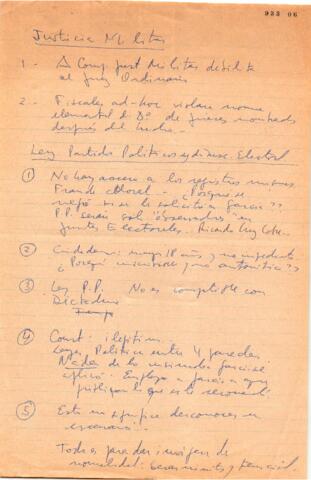 933 06
Justicia Militar
1 - A Comp. Just Militar debilita
al Juez Ordinario
2 - Fiscales ad-hoc violan norma
elemental d Dº de jueces nombrados
después del hecho.-
Ley Partidos Políticos y Electoral
① No hay acceso a los registros
Fraude electoral. - ¿Por qué se
negó si se le solicitó a García??
P.P. serán sólo "observadores" en
Juntas Electorales. Ricardo
② Ciudadano: mayor 18 años y no
¿Porqué inscribirse y no automática??
③ Ley P.P. No es compatible con
Dictadura
④ Const: ilegítima.
Leyes Políticas entre 4 paredes.
Nada de lo
aplicó. Emplazo a García a que
publique lo que es lo reservado.
⑤ Esto no significa desconocer un
escenario.
Todo es para dar imágen de
normalidad: